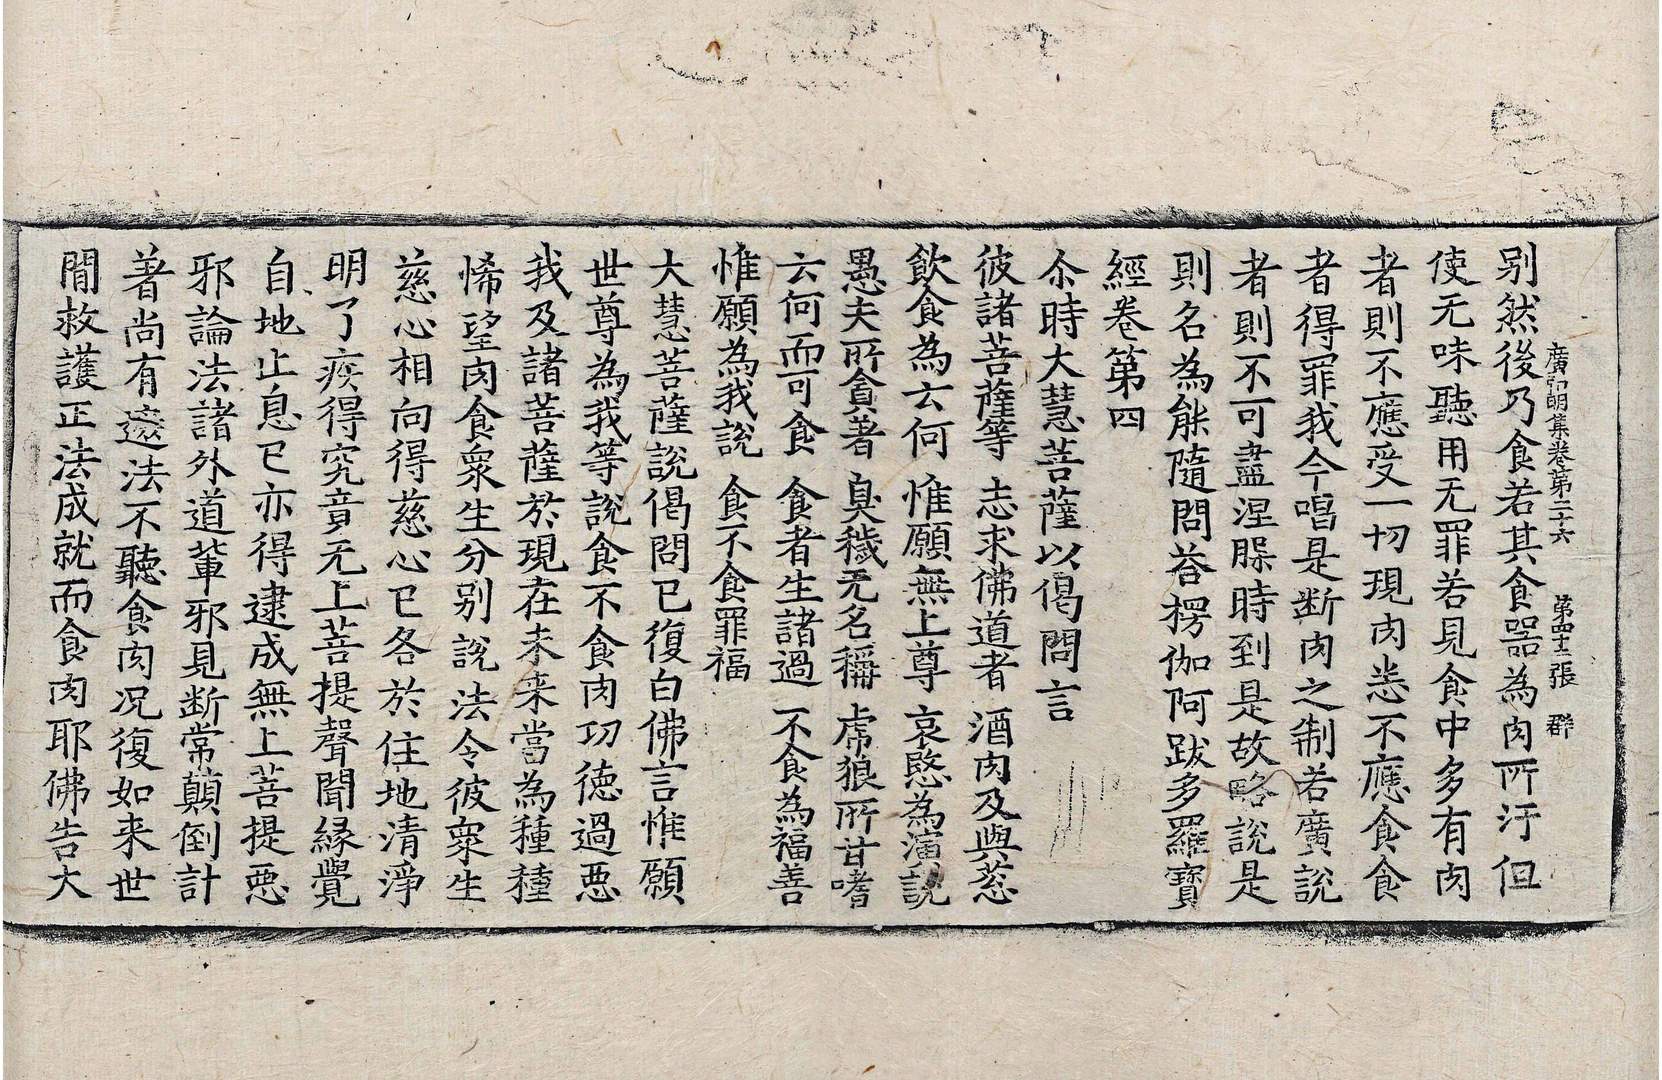 廣弘明集卷第二十六　第四十二張　群
別然後乃食若其食器為肉所汙但
使无味聽用无罪若見食中多有肉
者則不應受一切現肉悉不應食食
者得罪我今唱是断肉之制若廣說
者則不可盡涅膝時到是故略說是
則名為能隨問荅楞伽阿跋多羅寶
經卷第四
尒時大慧菩薩以偈問言
彼諸菩薩等　志求佛道者　酒肉及與葱
飲食為云何　惟願無上尊　哀愍為演說
愚夫所貪著　臭穢无名稱　虎狼所甘嗜
云何而可食　食者生諸過　不食為福善
惟願為我說　食不食罪福
大慧菩薩說偈問已復白佛言惟願
世尊為我等說食不食肉功德過惡
我及諸菩薩於現在未来當為種種
悕望肉食衆生分別說法令彼衆生
慈心相向得慈心已各於住地清淨
明了疾得究竟无上菩提聲聞緣覺
自地止息已亦得逮成無上菩提惡
邪論法諸外道輩邪見断常顛倒計
著尚有遮法不聽食肉况復如来世
間救護正法成就而食肉耶佛告大